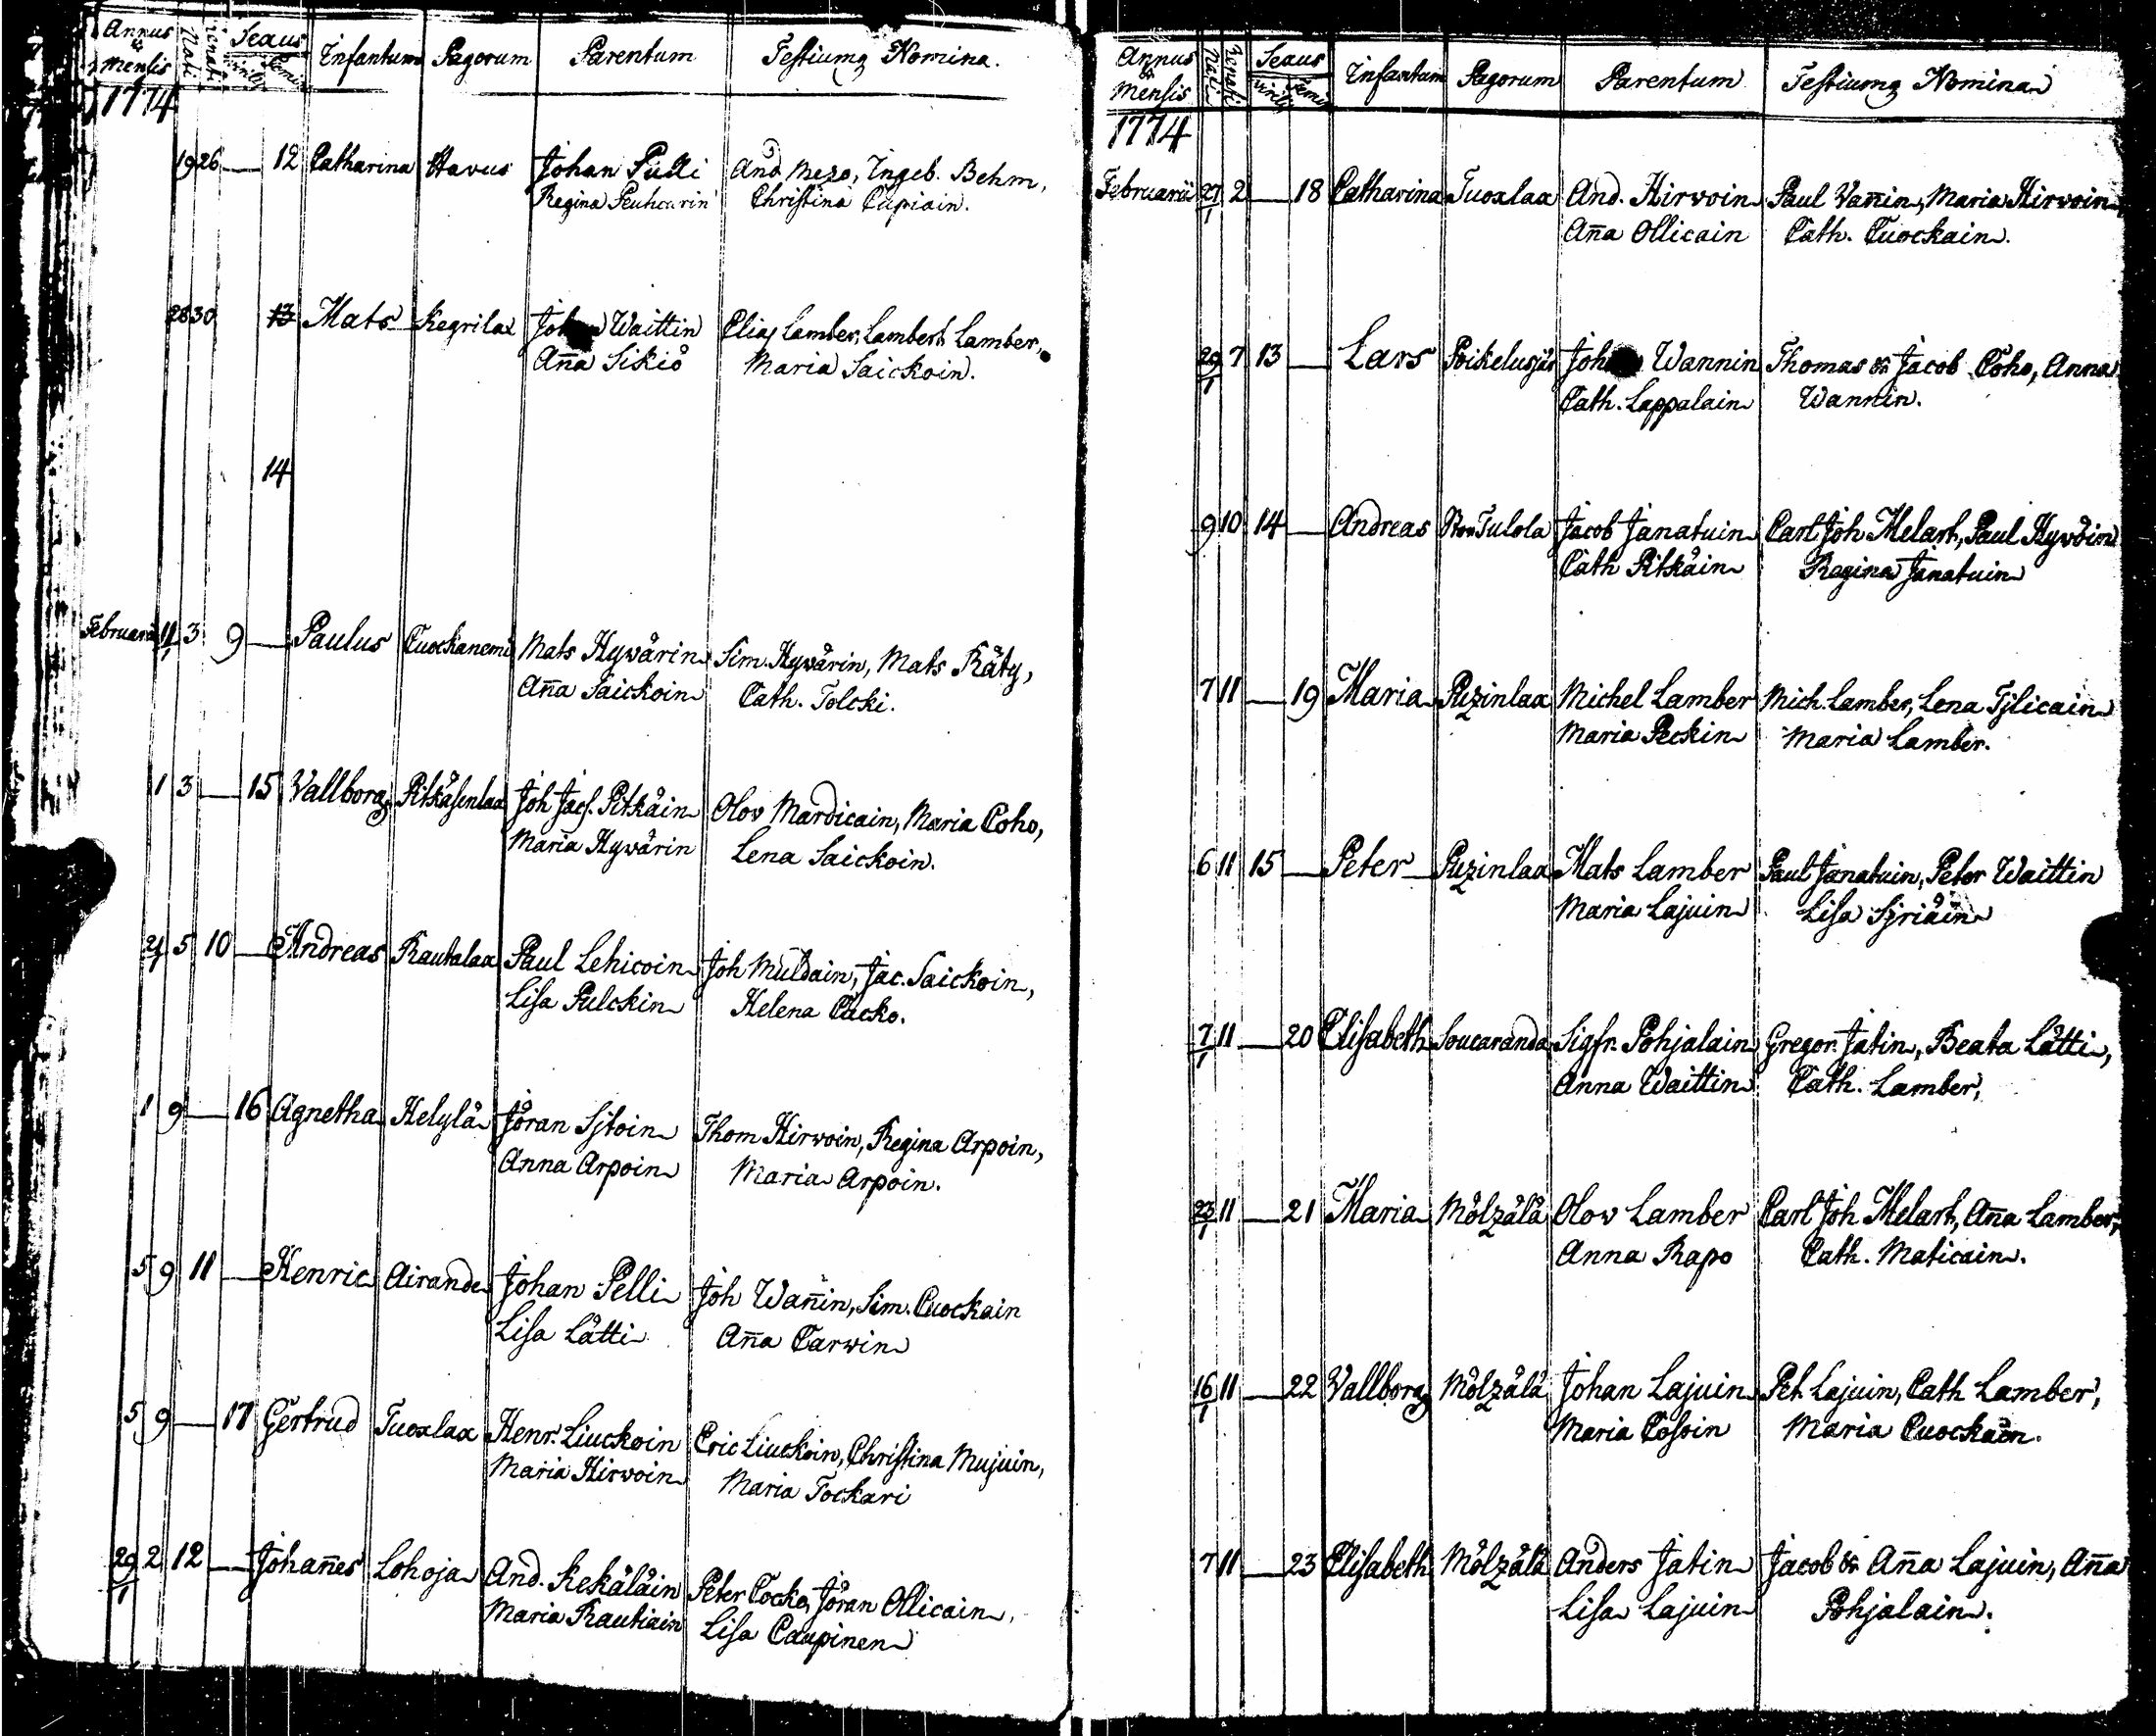 Annus & Mensis Nati Renati Sexus Infantum Pagorum Parentum Testiumq Nomina.
virilis Femin
1774
19 26 — 12 Catharina Havus Johan Pulli And Mezo, Ingeb. Behm,
Regina Peuhcurin Christina Cupiain.
28 30 13 Mats Kegrilax Waittin Elias Lamber, Lambert Lamber,
Aña Sikiö Maria Saickoin.
14
Februarii 11/1 3 9 — Paulus Cuockanemi Mats Hywärin Sim. Hywärin, Mats Räty,
Aña Saickoin Cath. Tolcki.
1 3 — 15 Vallborg Pitkäsenlax Joh Jacs. Pitkäin Olov Mardicain, Maria Coho,
Maria Hywärin Lena Saickoin.
5 10 — Andreas Rautalax Paul Lehicoin Joh Muldain, Jac. Saickoin,
Lisa Pulckin Helena Cacko.
1 9 — 16 Agnetha Helylä Jöran Sjtoin Thom Hirvoin, Regina Arpoin,
Anna Arpoin Maria Arpoin.
5 9 11 — Henric Airanda Johan Pelli Joh Wañin, Sim. Cuockain
Lisa Lätti Aña Carwin
5 9 — 17 Gertrud Tuoxlax Henr. Liuckoin Eric Liuckoin, Christina Mujuin,
Maria Hirvoin Maria Tockari
29/1 2 12 — Johañes Lohoja And. Kekäläin Peter Cocko, Jöran Ollicain,
Maria Rautiain Lisa Caupinen
Annus & Mensis Nati Renati Sexus Infantum Pagorum Parentum Testiumq Nomina
virilis Femin
1774
Februarii 27/1 2 — 18 Catharina Tuoxlax And. Hirvoin Paul Vañin, Maria Hirvoin,
Aña Ollicain Cath. Cuockain.
29/1 7 13 — Lars Poikelusjär Wannin Thomas & Jacob Coho, Anna
Cath. Lappalain Wannin.
9 10 14 — Andreas Tulola Jacob Janatuin Carl Joh Melart, Paul Hyvöin
Cath Pitkäin Regina Janatuin
7 11 — 19 Maria Puzinlax Michel Lamber Mich. Lamber, Lena Tjlicain
Maria Peckin Maria Lamber.
6 11 15 — Peter Puzinlax Mats Lamber Paul Janatuin, Peter Waittin
Maria Lajuin Lisa Sjriäin
7/1 11 — 20 Elisabeth Soucaranda Sigfr. Pohjalain Gregor. Jatin, Beata Lätti,
Anna Waittin Cath. Lamber,
23/1 11 — 21 Maria Mölzälä Olow Lamber Carl Joh Melart, Aña Lamber,
Anna Rapo Cath. Maticain.
16/1 11 — 22 Vallborg Mölzälä Johan Lajuin Pet. Lajuin, Cath Lamber,
Maria Cosoin Maria Cuockain.
7 11 — 23 Elisabeth Mölzälä Anders Jatin Jacob & Aña Lajuin, Aña
Lisa Lajuin Pohjalain.